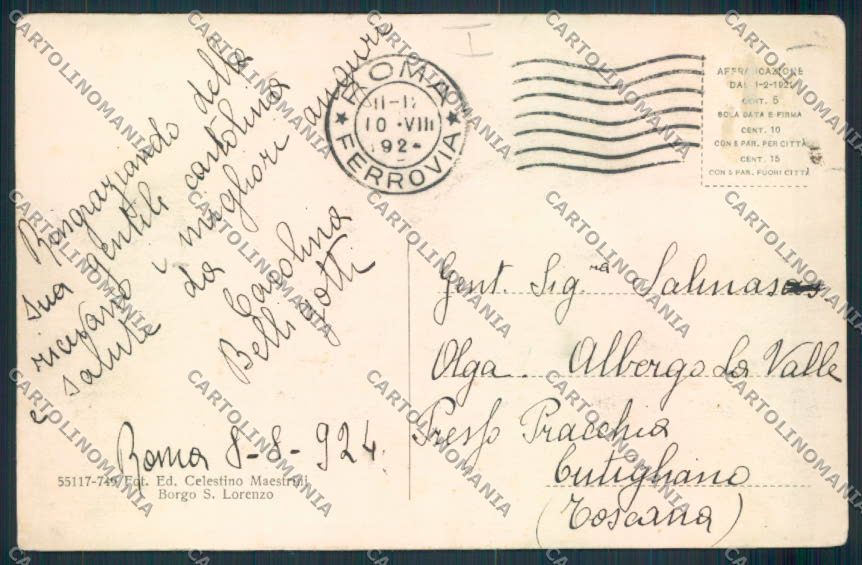 Ringraziando della
sua gentile cartolina
ricevano i migliori auguri
e saluti da
Carolina
Belli Gotti
Roma 8-8-924.
55117-749 Fot. Ed. Celestino Maestrini
Borgo S. Lorenzo
ROMA
10 ·VIII
192
FERROVIA
AFFRANCAZIONE
DAL 1-2-192
CENT. 5
SOLA DATA E FIRMA
CENT. 10
CON 5 PAR. PER CITTÀ
CENT. 15
CON 5 PAR. FUORI CITTÀ
Gent. Sig.ra Salinas
Olga. Albergo La Valle
Presso Pracchia
Cutigliano
(Toscana)
CARTOLINOMANIA